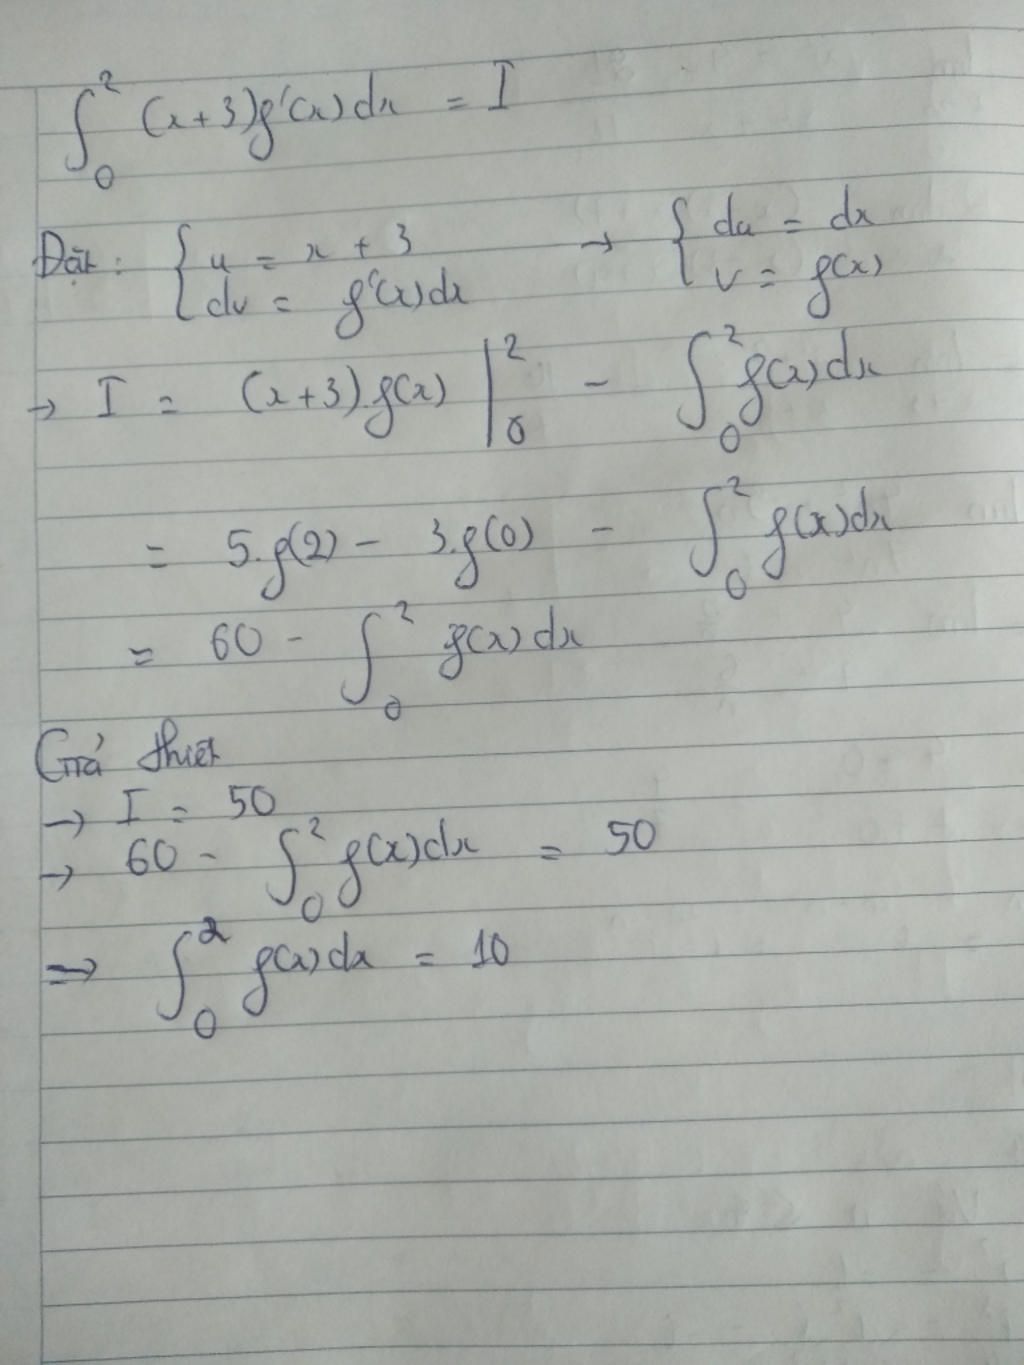 ∫₀² (x+3)g'(x)dx = I
Đặt: { u = x + 3 → { du = dx
dv = g'(x)dx v = g(x)
→ I = (x+3).g(x) |₀² - ∫₀² g(x)dx
= 5.g(2) - 3.g(0) - ∫₀² g(x)dx
= 60 - ∫₀² g(x)dx
Giả thiết
→ I = 50
→ 60 - ∫₀² g(x)dx = 50
⇒ ∫₀² g(x)dx = 10